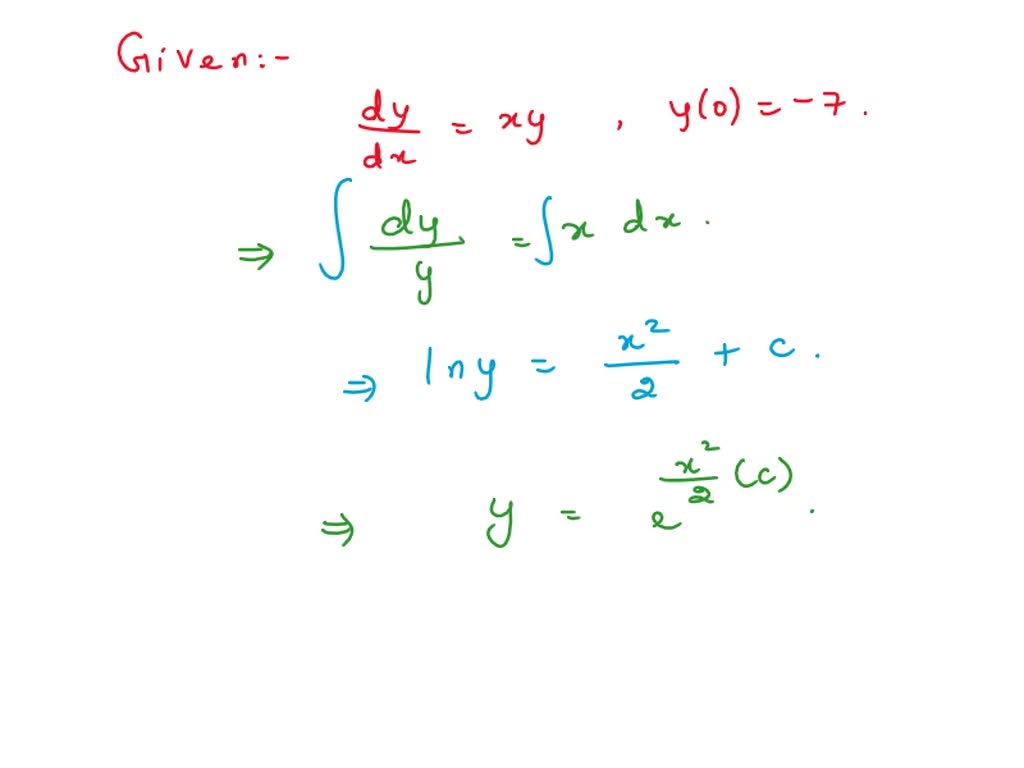 Given:-
dy/dx = xy , y(0) = -7.
⇒ ∫ dy/y = ∫ x dx.
⇒ ln y = x²/2 + c.
⇒ y = e^(x²/2 (c)).